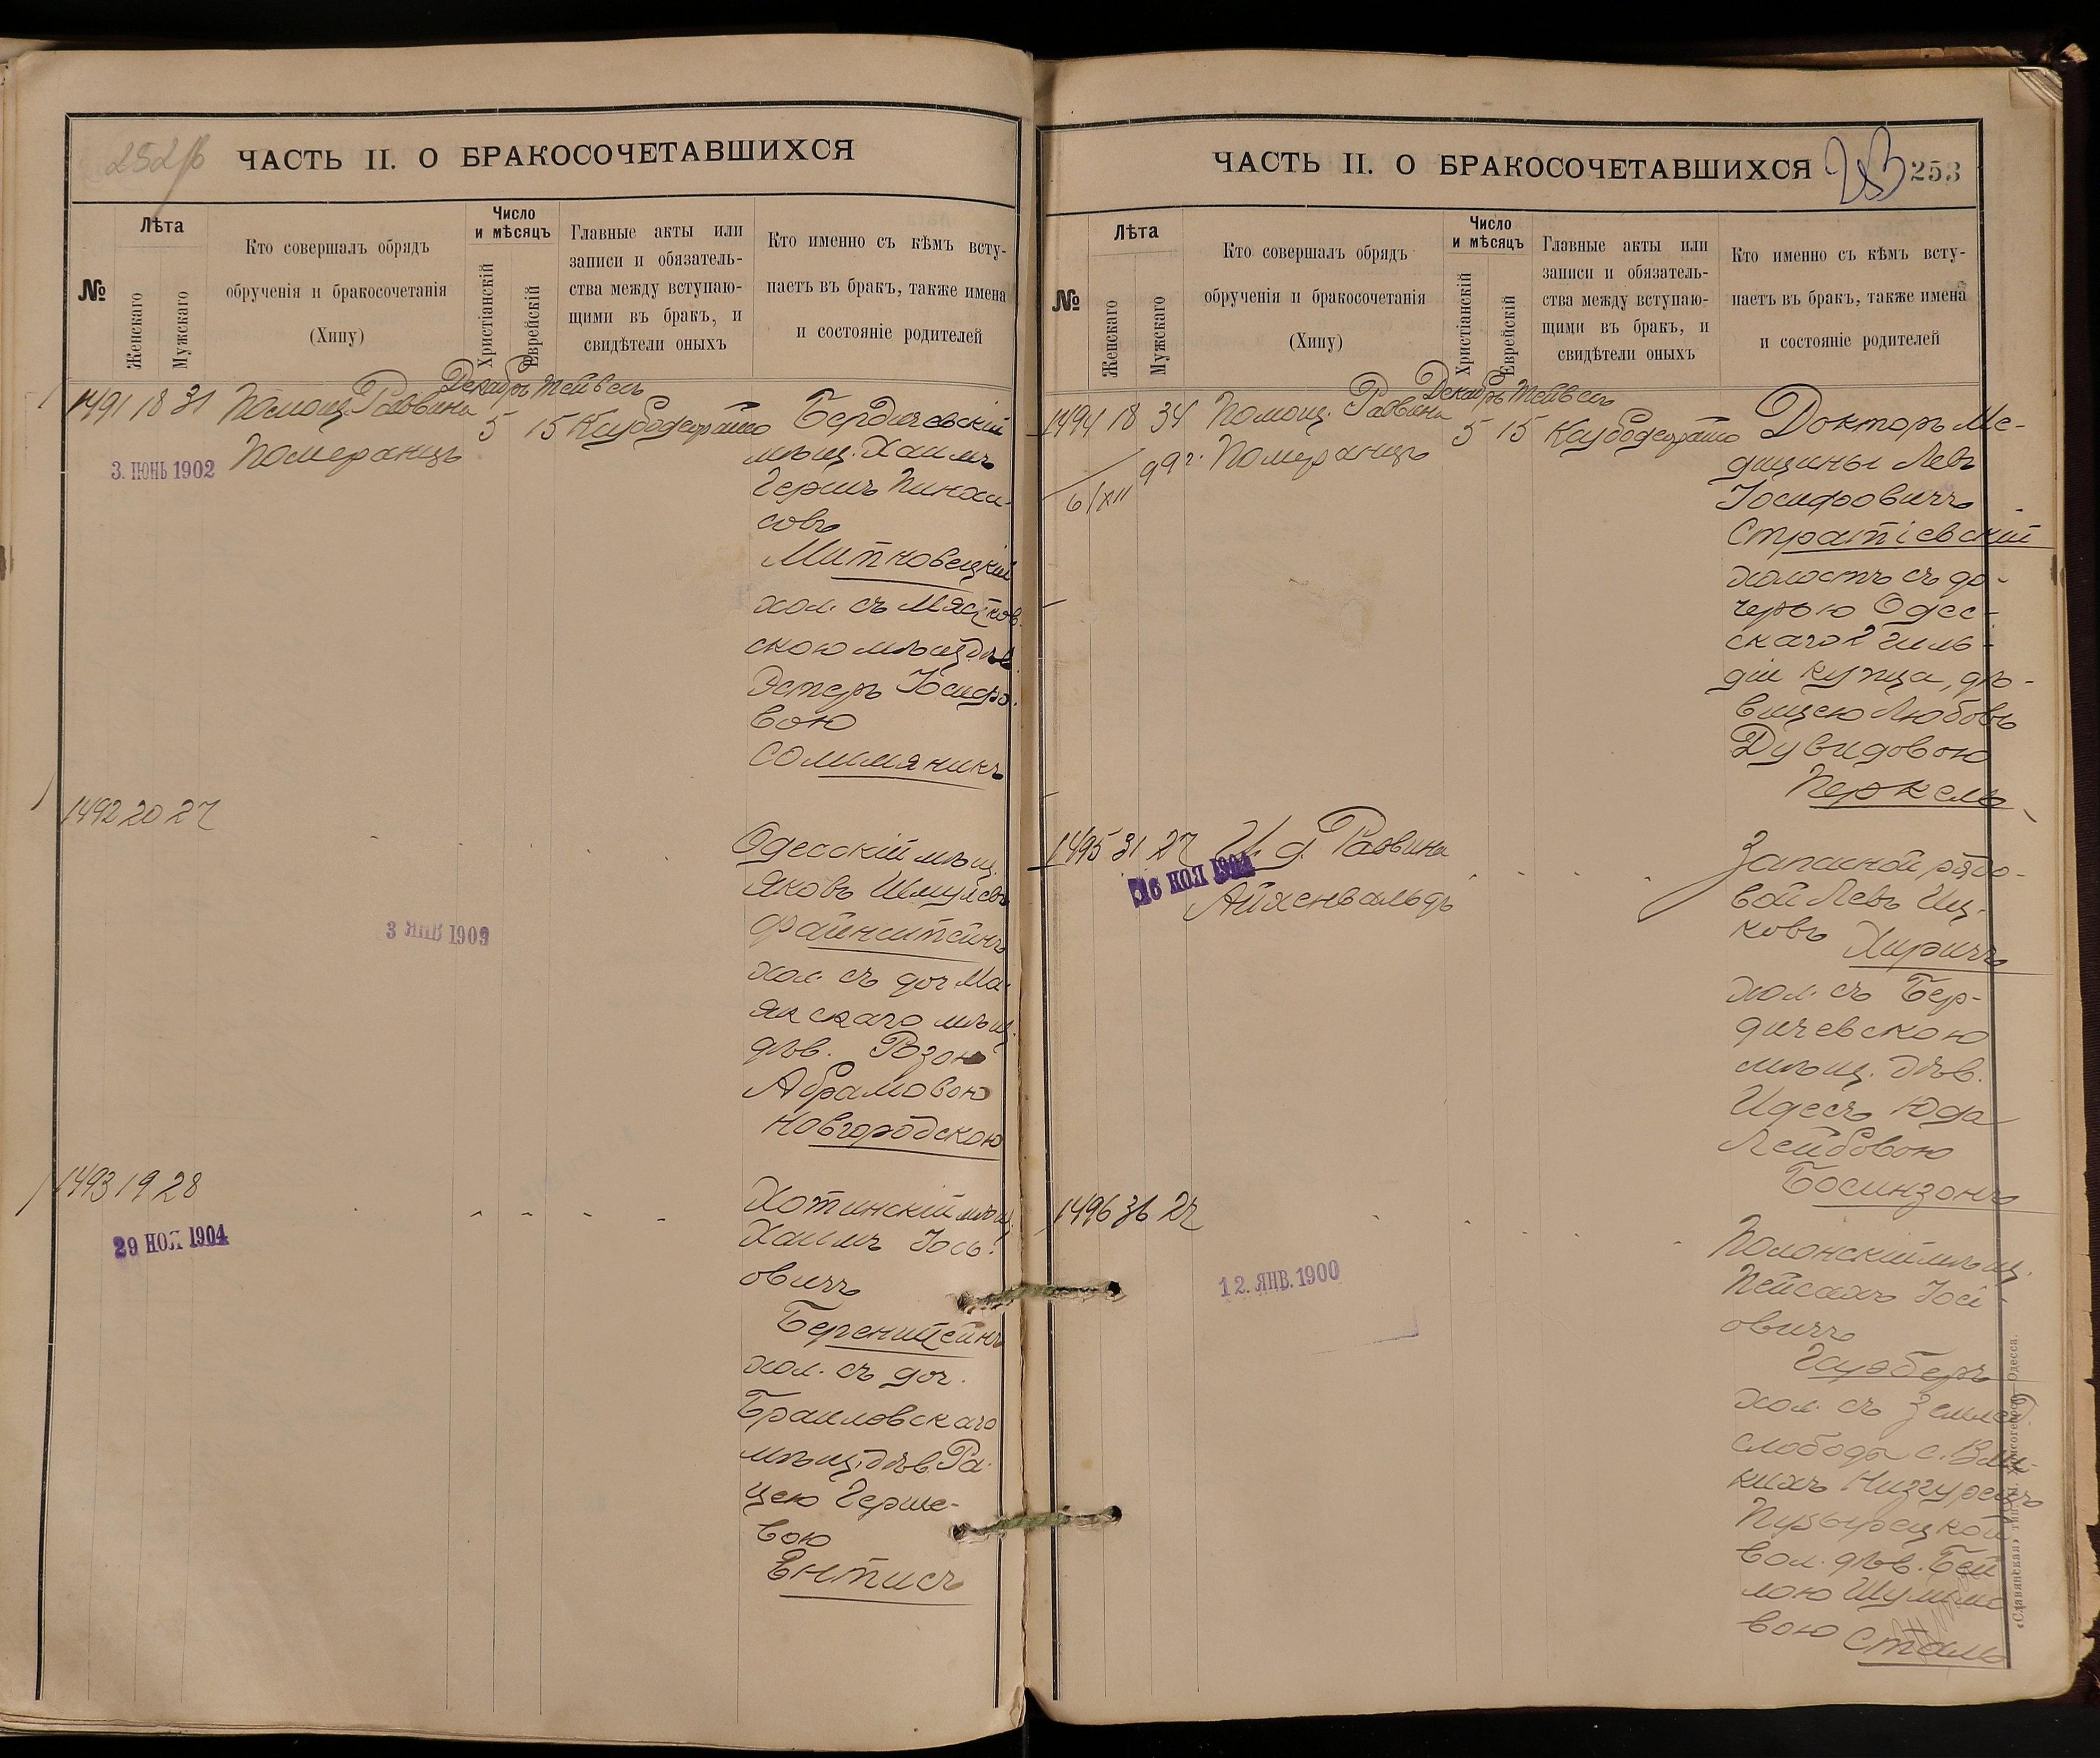 252об
ЧАСТЬ II. О БРАКОСОЧЕТАВШИХСЯ
№
Лѣта
Женскаго
Мужскаго
Кто совершалъ обрядъ
обрученія и бракосочетанія
(Хипу)
Число
и мѣсяцъ
Христіанскій
Еврейскій
Главные акты или
записи и обязатель-
ства между вступаю-
щими въ бракъ, и
свидѣтели оныхъ
Кто именно съ кѣмъ всту-
паетъ въ бракъ, также имена
и состояніе родителей
Декабрь Тейвесъ
1491 18 31 Помощ. Раввина 5 15
Померанцъ
3. ІЮНЬ 1902
Бердичевскій
мѣщ. Хаимъ
Гершъ Пинха-
совъ
Митновецкій
хол. съ Мястков.
скою мѣщ. дѣв.
Эстеръ Іосифо.
вою
Солимяникъ
1492 20 27
3 ЯНВ 1909
Одесскій мѣщ.
Яковъ Шмулевъ
Файнштейнъ
хол. съ доч. Ма-
якскаго мѣщ.
дѣв. Розою
Абрамовою
Новгородскою
1493 19 28
29 НОЯ 1904
Хотинскій мѣщ.
Хаимъ Іось-
овичъ
Беренштейнъ
хол. съ доч.
Браиловскаго
мѣщ. дѣв. Ра-
цею Герше-
вою
Энтисъ
ЧАСТЬ II. О БРАКОСОЧЕТАВШИХСЯ
253
253
№
Лѣта
Женскаго
Мужскаго
Кто совершалъ обрядъ
обрученія и бракосочетанія
(Хипу)
Число
и мѣсяцъ
Христіанскій
Еврейскій
Главные акты или
записи и обязатель-
ства между вступаю-
щими въ бракъ, и
свидѣтели оныхъ
Кто именно съ кѣмъ всту-
паетъ въ бракъ, также имена
и состояніе родителей
Декабрь Тейвесъ
1494 18 34 Помощ. Раввина 5 15
Померанцъ
6/XII 99 г.
Докторъ Ме-
дицины Левъ
Іосифовичъ
Стратіевскій
холостъ съ до-
черью Одес-
скаго 2 гиль-
діи купца, дѣ-
вицею Любовь
Дувидовою
Перкель
1495 31 27 И. д. Раввина
Айхенвальдъ
16 НОЯ 1904
Запасной рядо-
вой Левъ Иц-
ковъ Хиричъ
хол. съ Бер-
дичевскою
мѣщ. дѣв.
Идесъ Юда
Лейбовою
Босинзонъ
1496 36 27
12. ЯНВ. 1900
Полонскій мѣщ.
Пейсахъ Іось-
овичъ
Гауберъ
хол. съ землед.
слободы с. Вели-
кихъ
вол. дѣв. Бей
лою Шулимо
вою Сталь